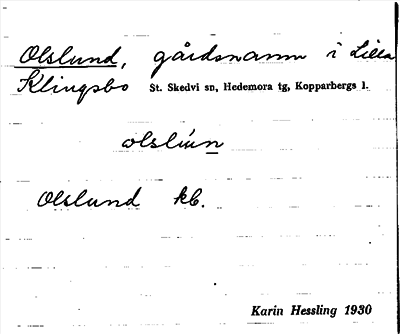 Olslund, gårdsnamn i Lilla
Klingsbo St. Skedvi sn, Hedemora tg, Kopparbergs l.
olslún
Olslund kb.
Karin Hessling 1930